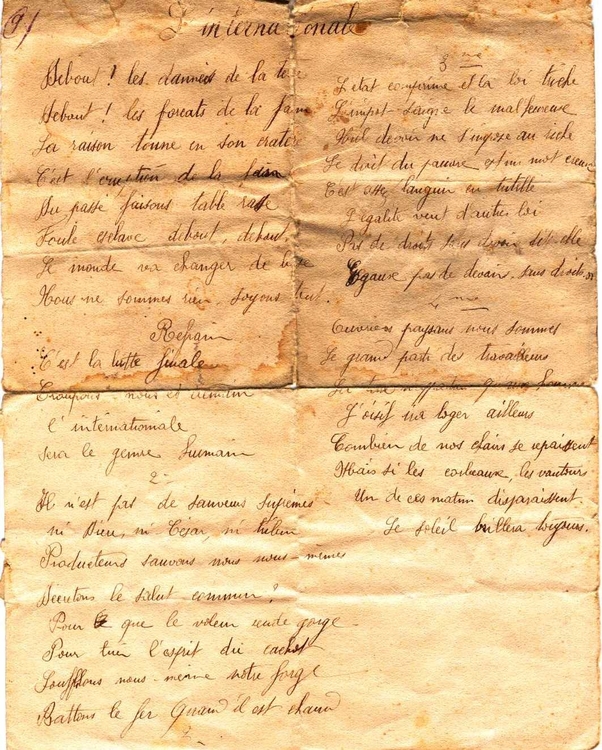 9/
L'internationale
Debout ! les dannés de la terre
debout ! les forcats de la faim
La raison tonne en son cratère
C'est l'eruption de la faim
Du passe faisons table rase
Foule esclave debout, debout.
Le monde va changer de base
Nous ne sommes rien, soyons tout.
Refrain
C'est la lutte finale
Groupons-nous et demain
l'internationale
sera le genre humain
2-
Il n'est pas de sauveurs suprêmes
ni Dieu, ni César, ni tribun
Producteurs sauvons nous nous-mêmes
Décretons le salut commun !
Pour que le voleur rende gorge
Pour tirer l'esprit du cachot
Soufflons nous-même notre forge
Battons le fer Quand il est chaud
3me
L'etat comprime et la loi triche
L'impot saigne le malheureux
Nul devoir ne s'impose au riche
Le droit du pauvre est un mot creux
C'est assez languir en tutelle
l'egalité veut d'autres loi
Pas de droits sans devoir dit-elle
Egaux pas de devoirs sans droits
4me
Ouvriers paysans nous sommes
Le grand parti des travailleurs
L'oisif ira loger ailleurs
Combien de nos chairs se repaissent
Mais si les corbeaux, les vautours
Un de ces matins disparaissent.
Le soleil brillera toujours.